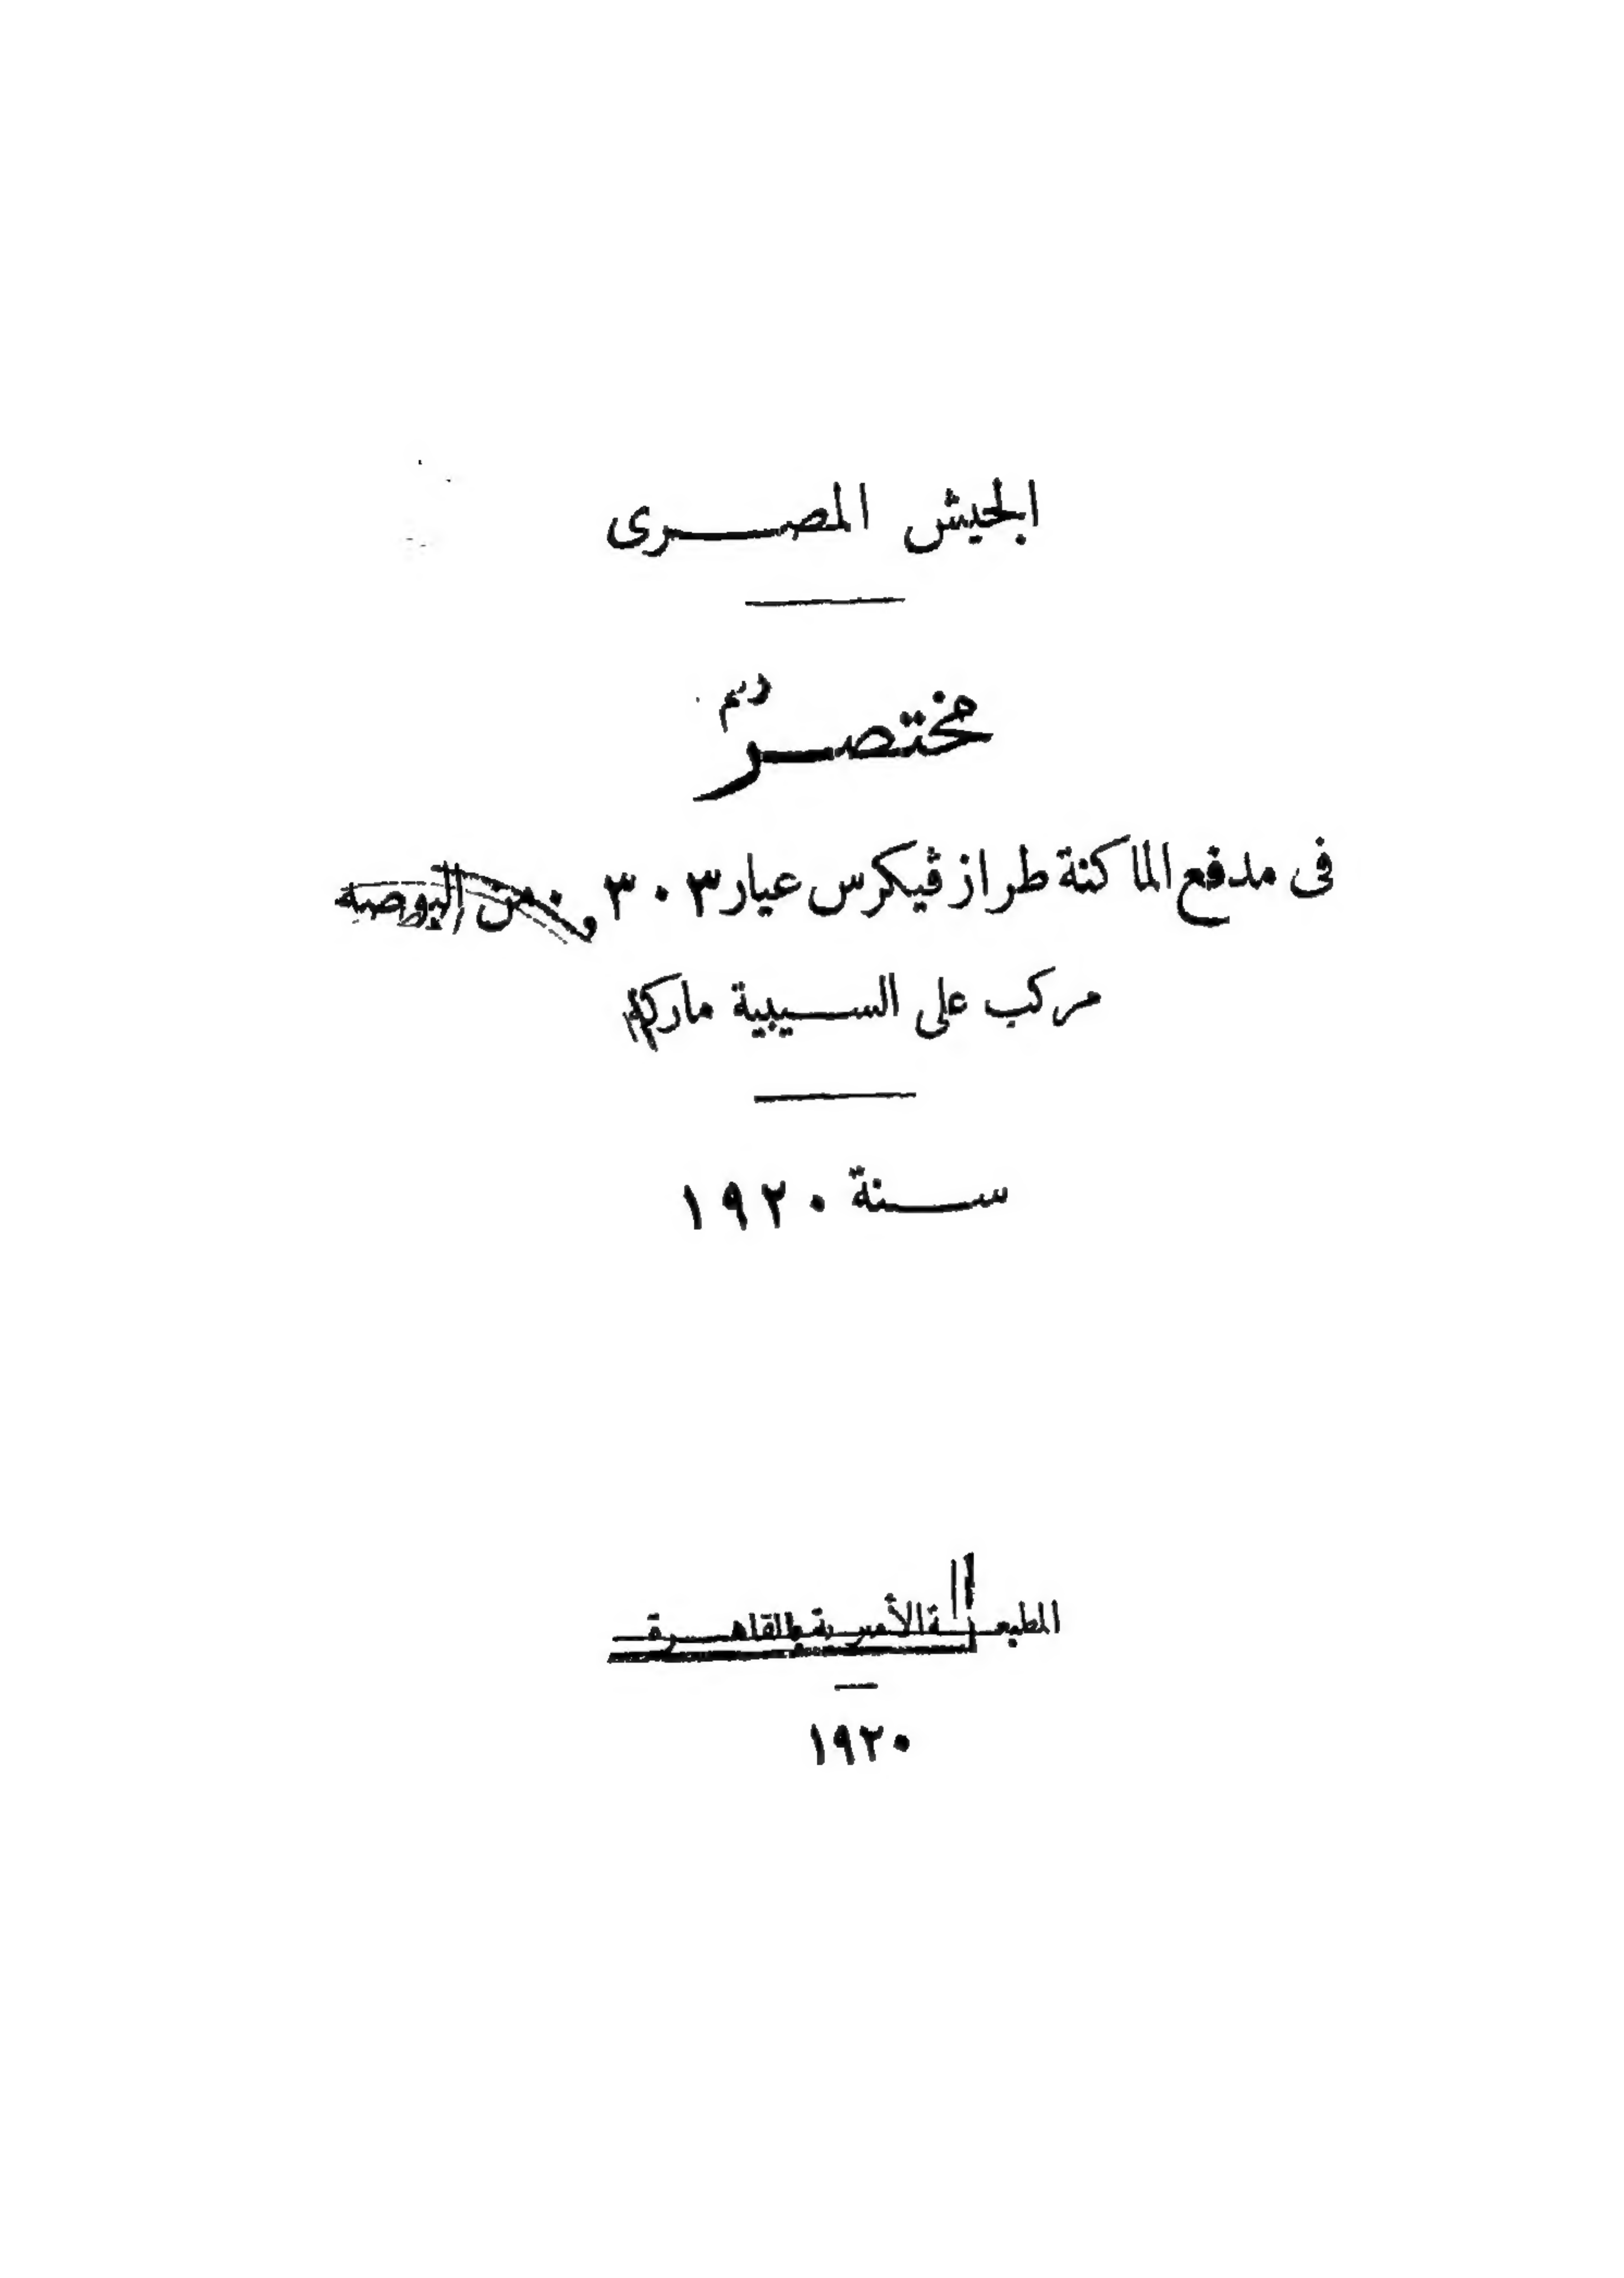 الجيش المصرى
مختصر
فى مدفع الماكنة طراز ڤيكرس عيار ٣٠٣ و. من البوصة
مركب على السيبية ماركة
سنة ١٩٢٠
المطبعة الأميرية بالقاهرة
١٩٢٠